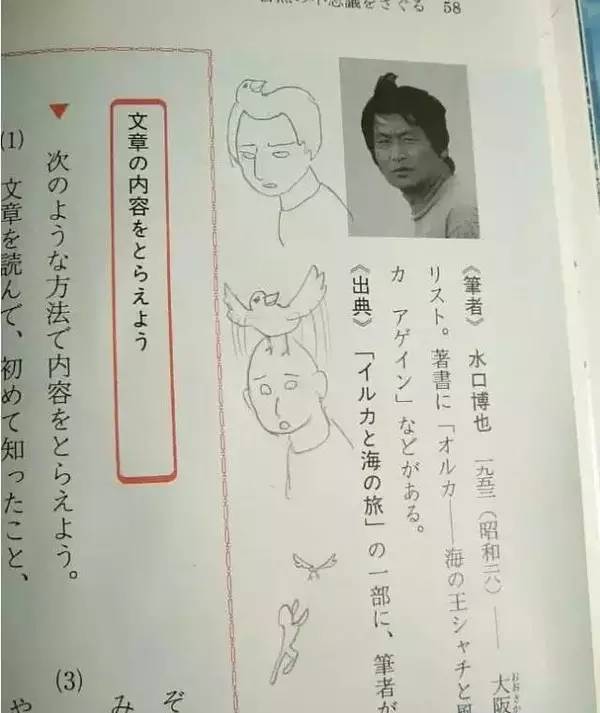 不思議をさぐる 58
《筆者》 水口博也 一九五三(昭和二八)—— 大阪
リスト。著書に「オルカ——海の王シャチと風
カ アゲイン」などがある。
《出典》 「イルカと海の旅」の一部に、筆者が
文章の内容をとらえよう
▼ 次のような方法で内容をとらえよう。
(1) 文章を読んで、初めて知ったこと、
ぞ
み
(3)
や